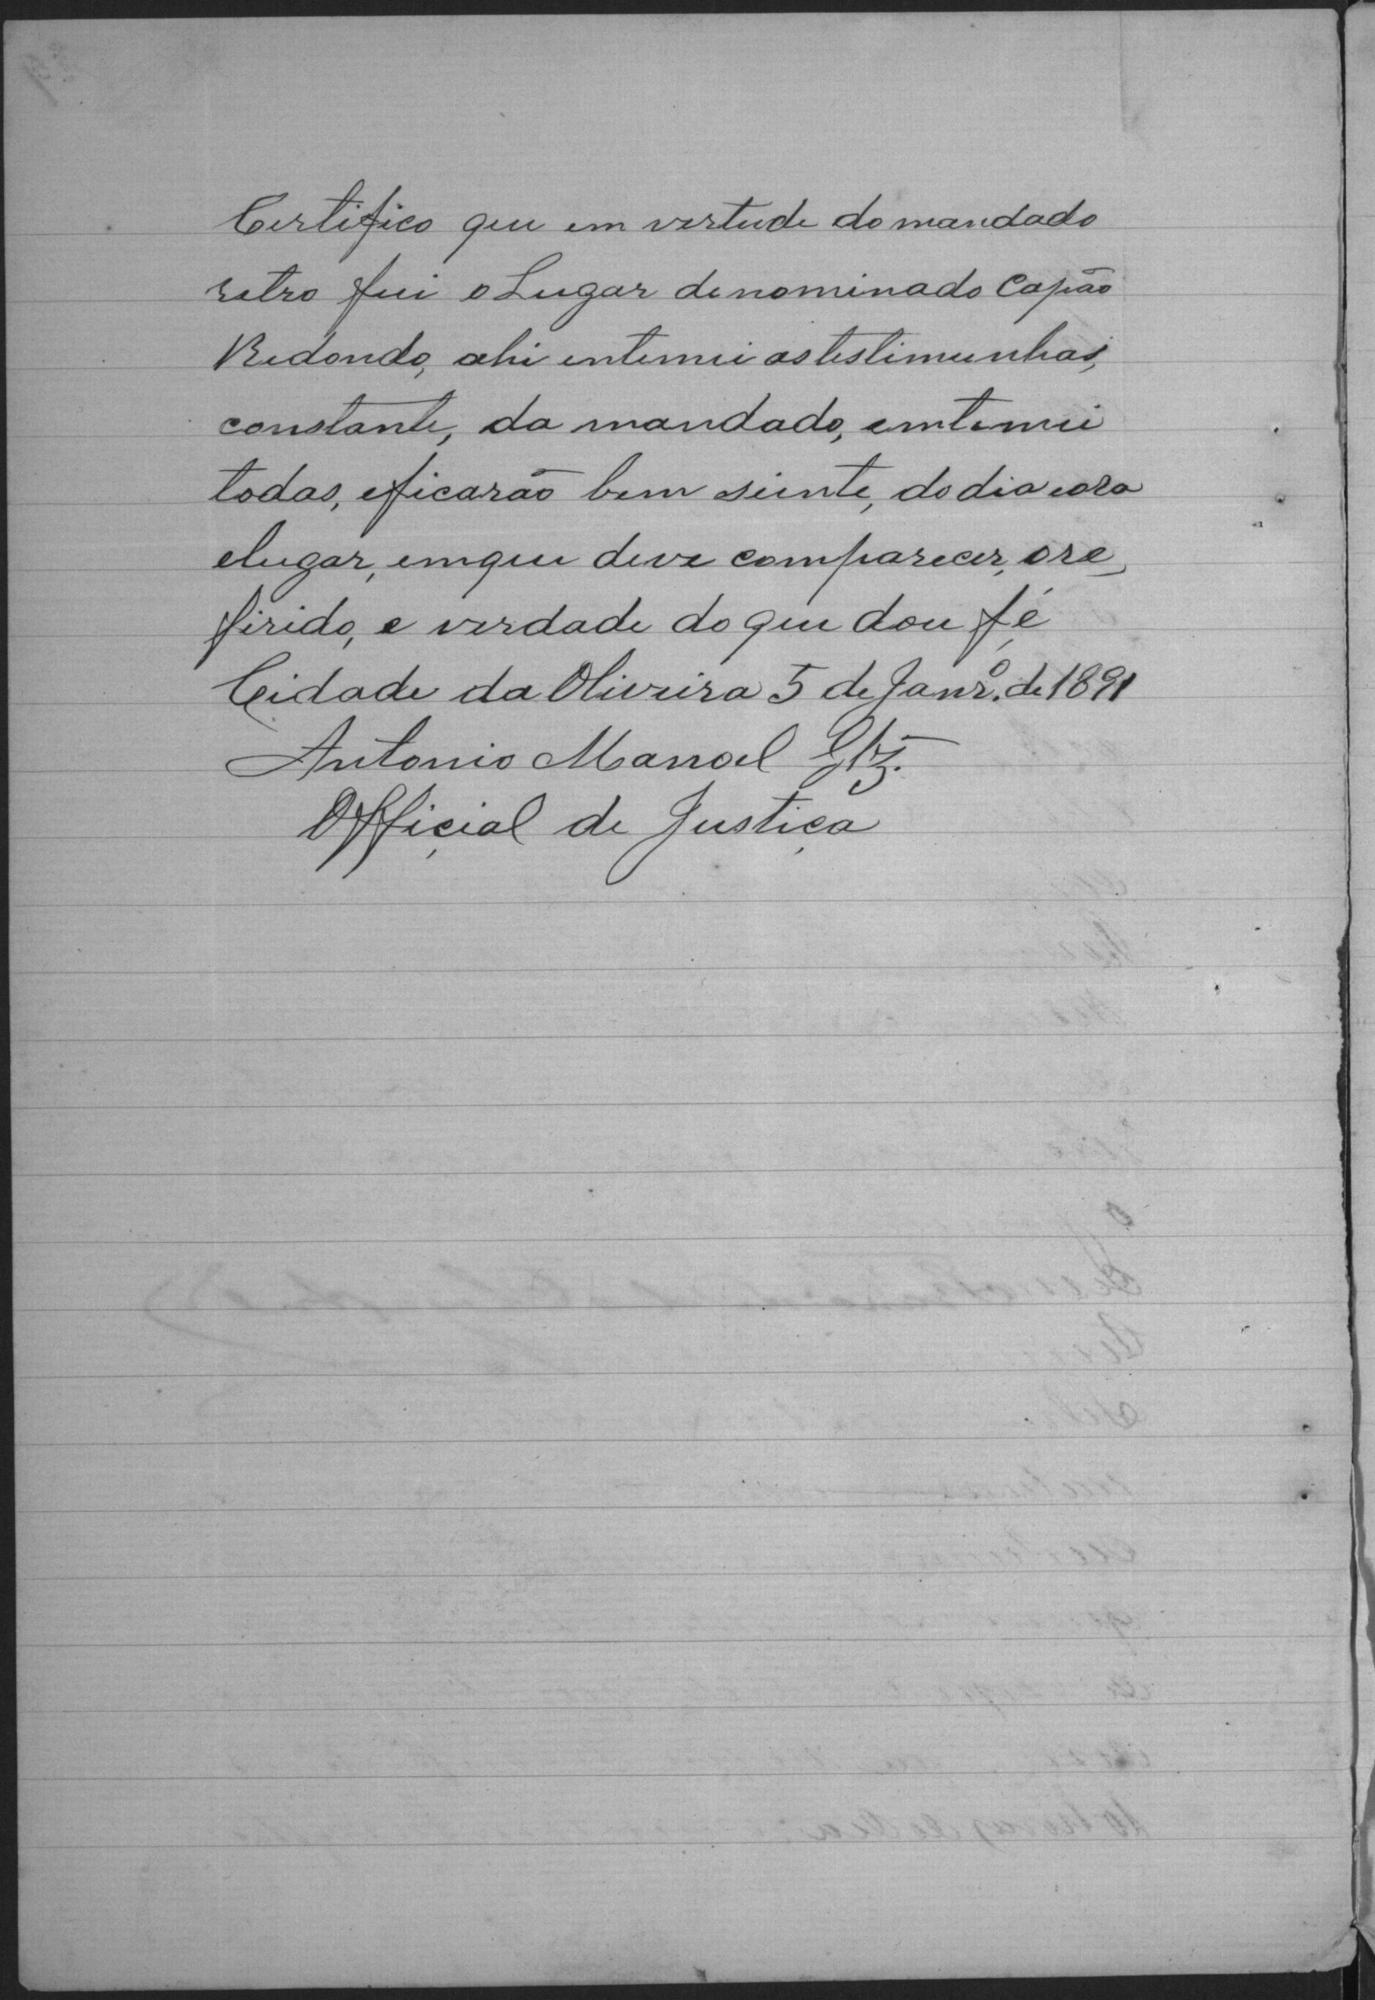 Certifico que em vertude do mandado
retro fui o Lugar denominado Capão
Redondo, ahi entemei as testimunhas,
constante, da mandado, emtemei
todas, eficarão bem siente, do dia eora
elugar, emque deve comparecer, ore_
firido, e verdade do que dou fé
Cidade da Oliveira 5 de Janr.º de 1891
Antonio Manoel Glz.
Official de Justiça